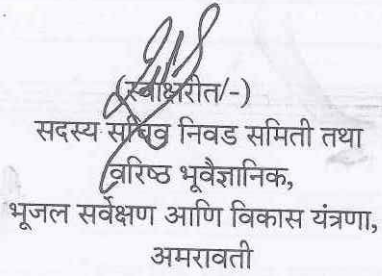 (स्वाक्षरीत/-)
सदस्य सचिव निवड समिती तथा
वरिष्ठ भूवैज्ञानिक,
भूजल सर्वेक्षण आणि विकास यंत्रणा,
अमरावती